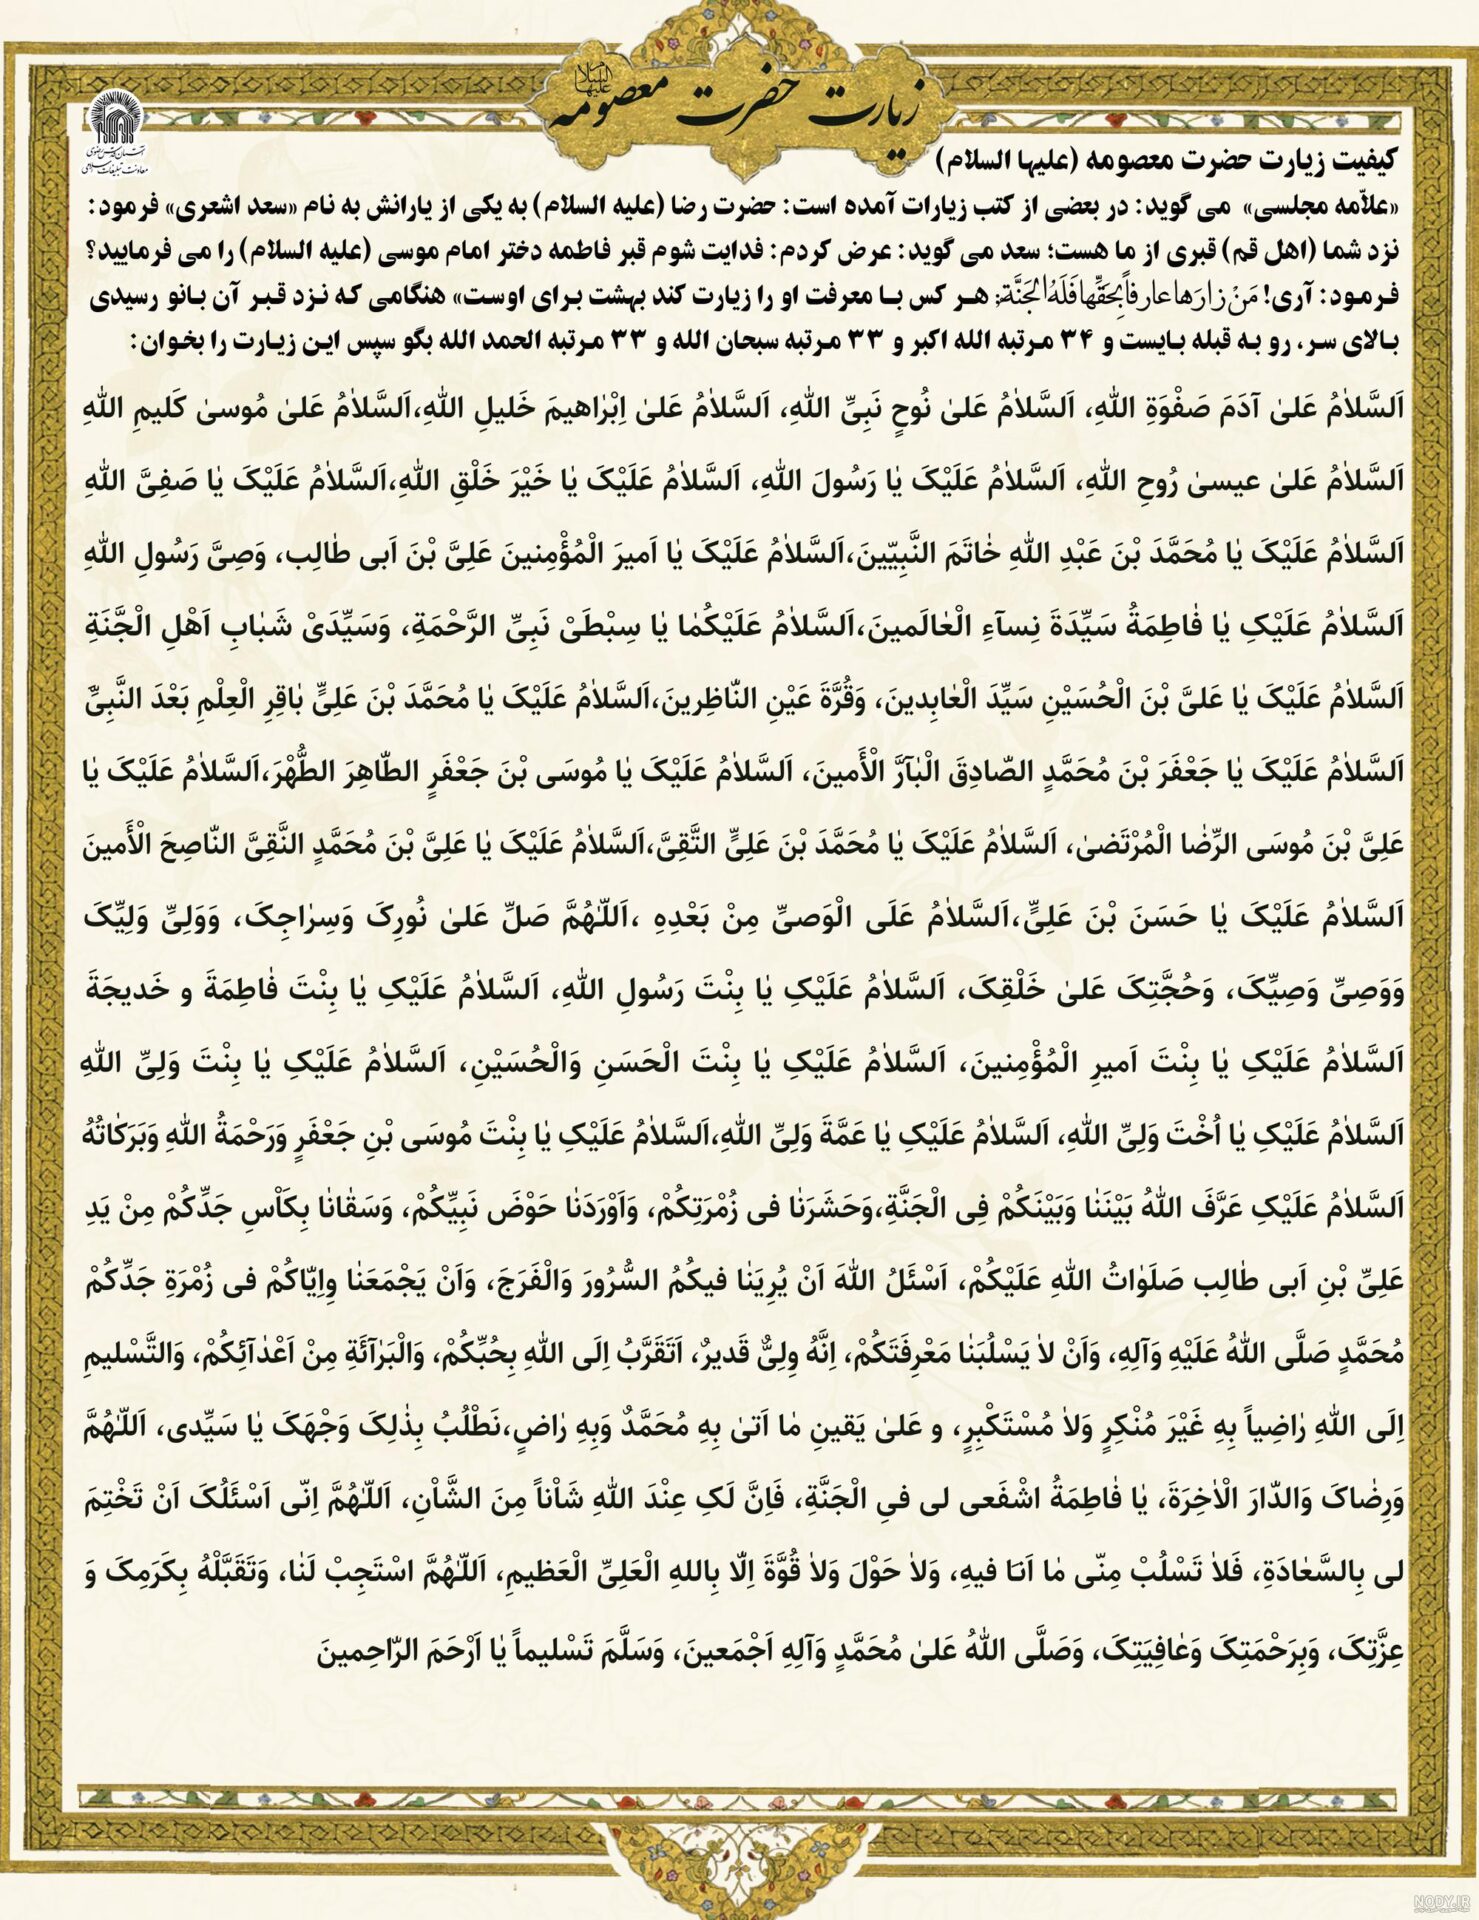 زیارت حضرت معصومه علیها السلام
آستان قدس رضوی
معاونت تبلیغات اسلامی
کیفیت زیارت حضرت معصومه (علیها السلام)
«علاّمه مجلسی» می گوید: در بعضی از کتب زیارات آمده است: حضرت رضا (علیه السلام) به یکی از یارانش به نام «سعد اشعری» فرمود:
نزد شما (اهل قم) قبری از ما هست؛ سعد می گوید: عرض کردم: فدایت شوم قبر فاطمه دختر امام موسی (علیه السلام) را می فرمایید؟
فرمود: آری! مَنْ زارَها عارِفاً بِحَقِّها فَلَهُ الْجَنَّة؛ هر کس با معرفت او را زیارت کند بهشت برای اوست» هنگامی که نزد قبر آن بانو رسیدی
بالای سر، رو به قبله بایست و ۳۴ مرتبه الله اکبر و ۳۳ مرتبه سبحان الله و ۳۳ مرتبه الحمد الله بگو سپس این زیارت را بخوان:
اَلسَّلاٰمُ عَلیٰ آدَمَ صَفْوَةِ اللهِ، اَلسَّلاٰمُ عَلیٰ نُوحٍ نَبِیِّ اللهِ، اَلسَّلاٰمُ عَلیٰ اِبْرٰاهیمَ خَلیلِ اللهِ،اَلسَّلاٰمُ عَلیٰ مُوسیٰ کَلیمِ اللهِ
اَلسَّلاٰمُ عَلیٰ عیسیٰ رُوحِ اللهِ، اَلسَّلاٰمُ عَلَیْکَ یٰا رَسُولَ اللهِ، اَلسَّلاٰمُ عَلَیْکَ یٰا خَیْرَ خَلْقِ اللهِ،اَلسَّلاٰمُ عَلَیْکَ یٰا صَفِیَّ اللهِ
اَلسَّلاٰمُ عَلَیْکَ یٰا مُحَمَّدَ بْنَ عَبْدِ اللهِ خٰاتَمَ النَّبِیّینَ،اَلسَّلاٰمُ عَلَیْکَ یٰا اَمیرَ الْمُؤْمِنینَ عَلِیَّ بْنَ اَبی طٰالِب، وَصِیَّ رَسُولِ اللهِ
اَلسَّلاٰمُ عَلَیْکِ یٰا فٰاطِمَةُ سَیِّدَةَ نِسآءِ الْعٰالَمینَ،اَلسَّلاٰمُ عَلَیْکُمٰا یٰا سِبْطَیْ نَبِیِّ الرَّحْمَةِ، وَسَیِّدَیْ شَبٰابِ اَهْلِ الْجَّنَةِ
اَلسَّلاٰمُ عَلَیْکَ یٰا عَلیَّ بْنَ الْحُسَیْنِ سَیِّدَ الْعٰابِدینَ، وَقُرَّةَ عَیْنِ النّٰاظِرینَ،اَلسَّلاٰمُ عَلَیْکَ یٰا مُحَمَّدَ بْنَ عَلِیٍّ بٰاقِرِ الْعِلْمِ بَعْدَ النَّبِیِّ
اَلسَّلاٰمُ عَلَیْکَ یٰا جَعْفَرَ بْنَ مُحَمَّدٍ الصّٰادِقَ الْبٰآرَّ الْأَمینَ، اَلسَّلاٰمُ عَلَیْکَ یٰا مُوسَی بْنَ جَعْفَرٍ الطّٰاهِرَ الطُّهْرَ،اَلسَّلاٰمُ عَلَیْکَ یٰا
عَلِیَّ بْنَ مُوسَی الرِّضٰا الْمُرْتَضیٰ، اَلسَّلاٰمُ عَلَیْکَ یٰا مُحَمَّدَ بْنَ عَلِیٍّ التَّقِیَّ،اَلسَّلاٰمُ عَلَیْکَ یٰا عَلِیَّ بْنَ مُحَمَّدٍ النَّقِیَّ النّٰاصِحَ الْأَمینَ
اَلسَّلاٰمُ عَلَیْکَ یٰا حَسَنَ بْنَ عَلِیٍّ،اَلسَّلاٰمُ عَلَی الْوَصیِّ مِنْ بَعْدِهِ ،اَللّٰهُمَّ صَلِّ عَلیٰ نُورِکَ وَسِرٰاجِکَ، وَوَلِیِّ وَلِیِّکَ
وَوَصِیِّ وَصِیِّکَ، وَحُجَّتِکَ عَلیٰ خَلْقِکَ، اَلسَّلاٰمُ عَلَیْکِ یٰا بِنْتَ رَسُولِ اللهِ، اَلسَّلاٰمُ عَلَیْکِ یٰا بِنْتَ فٰاطِمَةَ و خَدیجَةَ
اَلسَّلاٰمُ عَلَیْکِ یٰا بِنْتَ اَمیرِ الْمُؤْمِنینَ، اَلسَّلاٰمُ عَلَیْکِ یٰا بِنْتَ الْحَسَنِ وَالْحُسَیْنِ، اَلسَّلاٰمُ عَلَیْکِ یٰا بِنْتَ وَلِیِّ اللهِ
اَلسَّلاٰمُ عَلَیْکِ یٰا اُخْتَ وَلِیِّ اللهِ، اَلسَّلاٰمُ عَلَیْکِ یٰا عَمَّةَ وَلِیِّ اللهِ،اَلسَّلاٰمُ عَلَیْکِ یٰا بِنْتَ مُوسَی بْنِ جَعْفَرٍ وَرَحْمَةُ اللهِ وَبَرَکٰاتُهُ
اَلسَّلاٰمُ عَلَیْکِ عَرَّفَ اللهُ بَیْنَنٰا وَبَیْنَکُمْ فِی الْجَنَّةِ،وَحَشَرَنٰا فی زُمْرَتِکُمْ، وَاَوْرَدَنٰا حَوْضَ نَبِیِّکُمْ، وَسَقٰانٰا بِکَاْسِ جَدِّکُمْ مِنْ یَدِ
عَلِیِّ بْنِ اَبی طٰالِب صَلَوٰاتُ اللهِ عَلَیْکُمْ، اَسْئَلُ اللهَ اَنْ یُرِیَنٰا فیکُمُ السُّرُورَ وَالْفَرَجَ، وَاَنْ یَجْمَعَنٰا وِایّٰاکُمْ فی زُمْرَةِ جَدِّکُمْ
مُحَمَّدٍ صَلَّی اللهُ عَلَیْهِ وَآلِهِ، وَاَنْ لاٰ یَسْلُبَنٰا مَعْرِفَتَکُمْ، اِنَّهُ وِلیٌّ قَدیرٌ، اَتَقَرَّبُ اِلَی اللهِ بِحُبِّکُمْ، وَالْبَرٰآئَةِ مِنْ اَعْدٰآئِکُمْ، وَالتَّسْلیمِ
اِلَی اللهِ رٰاضِیاً بِهِ غَیْرَ مُنْکِرٍ وَلاٰ مُسْتَکْبِرٍ، و عَلیٰ یَقینِ مٰا اَتیٰ بِهِ مُحَمَّدٌ وَبِهِ رٰاضٍ،نَطْلُبُ بِذٰلِکَ وَجْهَکَ یٰا سَیِّدی، اَللّٰهُمَّ
وَرِضٰاکَ وَالدّٰارَ الْاٰخِرَةَ، یٰا فٰاطِمَةُ اشْفَعی لی فیِ الْجَنَّةِ، فَاِنَّ لَکِ عِنْدَ اللهِ شَاْناً مِنَ الشَّاْنِ، اَللّٰهُمَّ اِنّی اَسْئَلُکَ اَنْ تَخْتِمَ
لی بِالسَّعٰادَةِ، فَلاٰ تَسْلُبْ مِنّی مٰا اَنَا فیهِ، وَلاٰ حَوْلَ وَلاٰ قُوَّةَ اِلّٰا بِاللهِ الْعَلِیِّ الْعَظیمِ، اَللّٰهُمَّ اسْتَجِبْ لَنٰا، وَتَقَبَّلْهُ بِکَرَمِکَ وَ
عِزَّتِکَ، وَبِرَحْمَتِکَ وَعٰافِیَتِکَ، وَصَلَّی اللهُ عَلیٰ مُحَمَّدٍ وَآلِهِ اَجْمَعینَ، وَسَلَّمَ تَسْلیماً یٰا اَرْحَمَ الرّٰاحِمینَ
NODY.IR